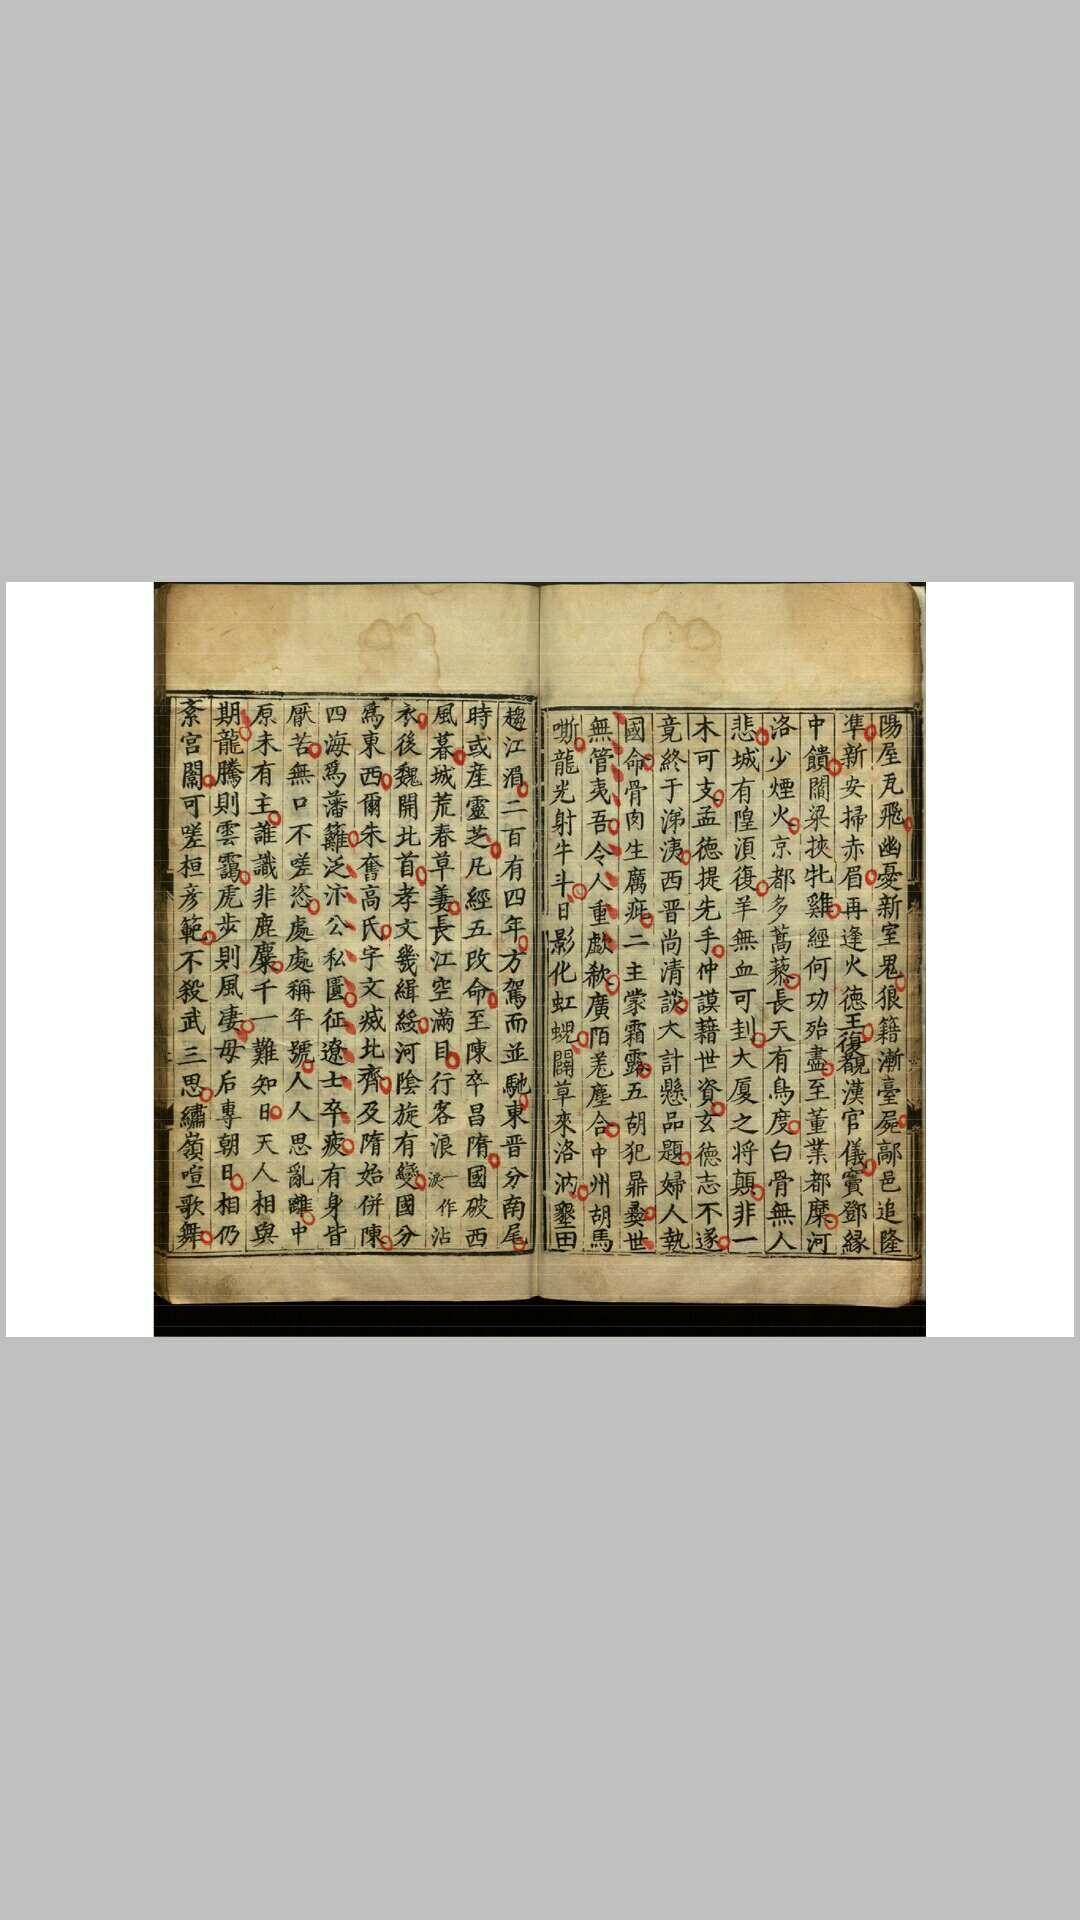 陽屋瓦飛幽憂新室鬼狼籍漸臺屍鄗邑追隆
凖新安掃赤眉再逢火德王復覩漢官儀竇鄧緣
中饋閻梁挾牝雞經何功殆盡至董業都糜河
洛少煙火京都多蒿藜長天有鳥度白骨無人
悲城有隍湏復羊無血可刲大厦之將顛非一
木可支孟德提先手仲謀藉世資玄德志不遂
竟終于涕洟西晋尚清談大計懸品題婦人執
國命骨肉生厲疵二主蒙霜露五胡犯鼎彜世
無管夷吾令人重歔欷廣陌羗塵合中州胡馬
嘶龍光射牛斗日影化虹蜺闢草來洛汭墾田
趨江湄二百有四年方駕而並馳東晋分南尾
時或産靈芝凡經五改命至陳卒昌隋國破西
風暮城荒春草萋長江空滿目行客浪一作淚沾
衣後魏開北首孝文幾緝綏河陰旋有變國分
爲東西爾朱奮高氏宇文烕北齊及隋始併陳
四海爲藩籬泛汴公私匱征遼士卒疲有身皆
厭苦無口不嗟恣處處稱年號人人思亂離中
原未有主誰識非鹿麋千一難知日天人相與
期龍騰則雲靄虎步則風凄母后專朝日相仍
紊宮闈可嗟桓彦範不殺武三思繡嶺喧歌舞